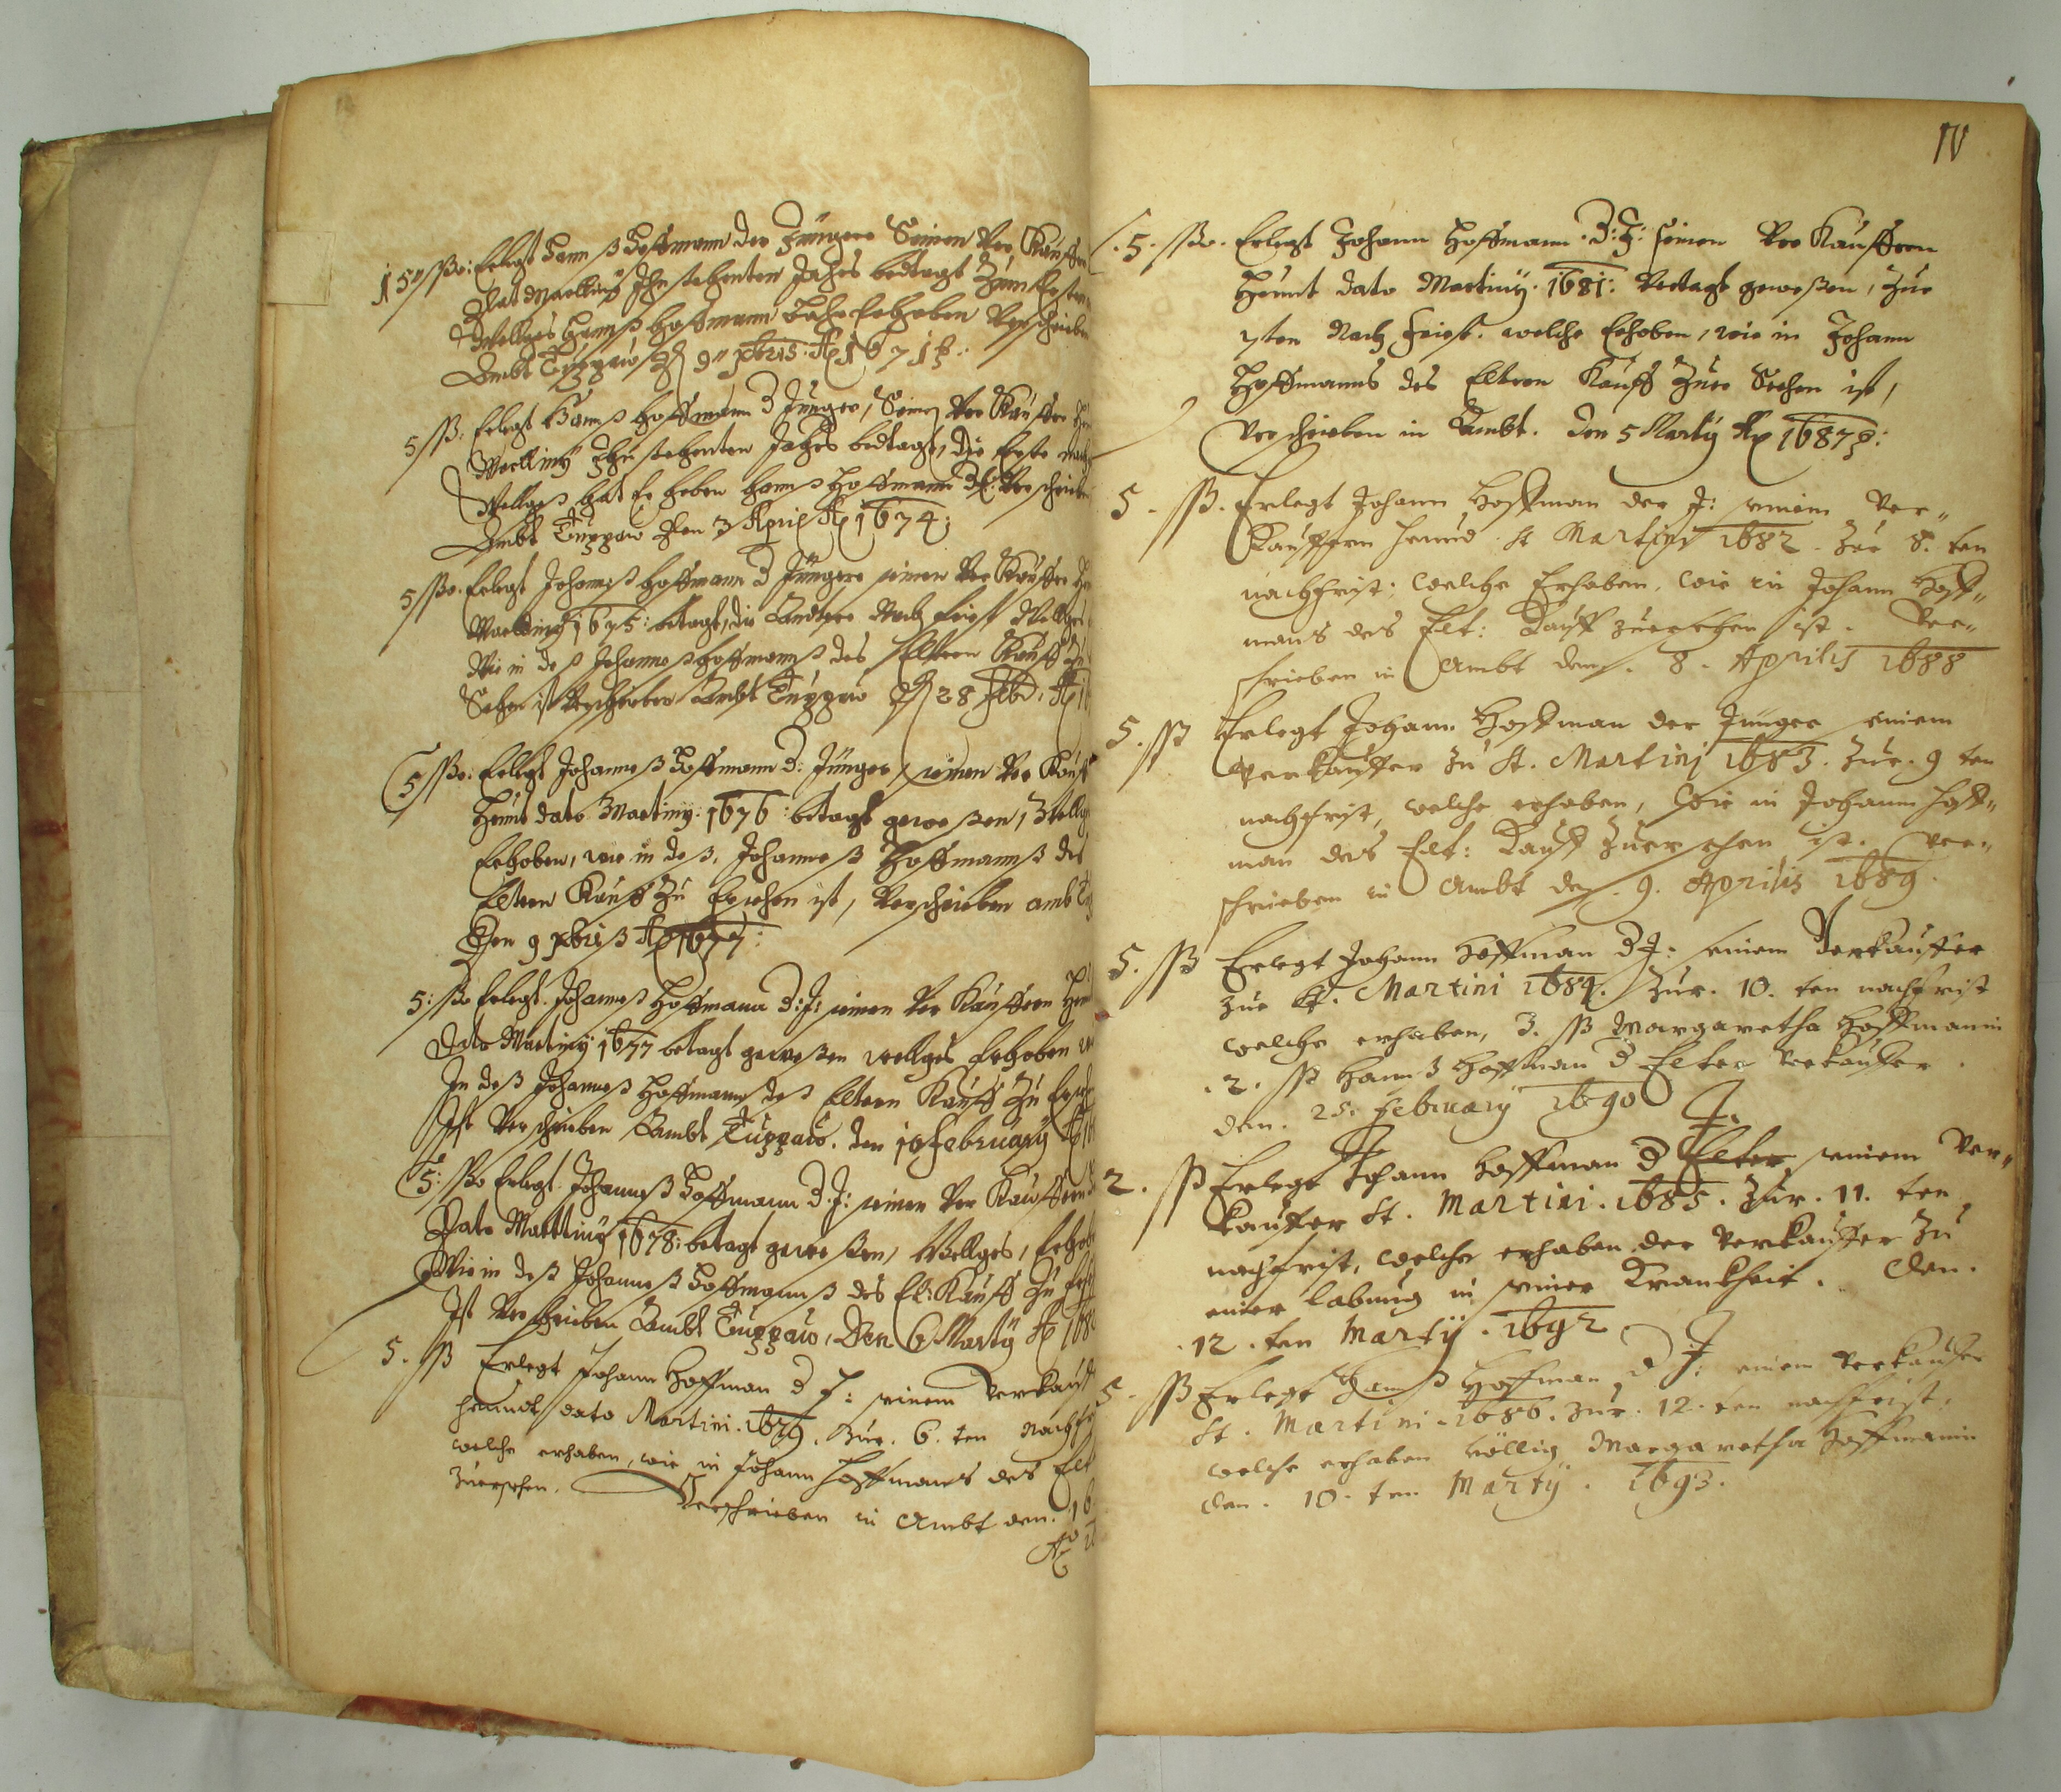 15 ßo: Erlegt Hannß Hoffmann der Jüngere Seinen Ver Kauffer
Dat Martiny Jhn stehenten Jahrs betagt Zum Ersten
Wellges Hannß Hoffmann Erhoben Verschrieben
Ambt Tuppau 9 xbris Ao 1671
5 ß: Erlegt Hannß Hoffmann D Jünger, Seinen Ver Kauffer
Martiny Jhn stehenten Jahrs betagt, die Erste nach
Wellges hat Er heben Hannß Hoffmann D E: Verschrieben
Ambt Tuppau Den 3 April Ao 1674:
5 ßo. Erlegt Johanneß Hoffmann D Jüngere seinen Ver Kauffer
Martiny 1675: betagt, die Andere Nach Frist Wellges
Wie in deß Johanneß Hoffmannß des Eltern Kauff Zu
Sehen ist Verschrieben Ambt Tuppau 28 Feb: Ao
5 ßo: Erlegt Johanneß Hoffmann D: Jünger, seinen Ver Kauff
Heint dato Martiny: 1676: betagt geweßen, Wellges
Erhoben, wie in deß, Johanneß Hoffmannß des
Eltern Kauff Zu Ersehen ist, Verschrieben amb
Den 9 xbriß Ao 1677:
5: ßo Erlegt. Johanneß Hoffmann D: J: seinen Ver Kauffern
Dato Martiny 1677 betagt geweßen wellges Erhoben
In deß Johanneß Hoffmannß deß Eltern Kauff Zu
Ist Verschrieben Ambt Tuppau. den 10 February Ao
5: ßo Erlegt. Johanneß Hoffmann D. J: seinen Ver Kauffern
Dato Marttiny 1678: betagt geweßen, Wellges, Erhoben
Wie in deß Johanneß Hoffmannß des El: Kauff Zu
Ist Verschrieben Ambt Tuppau, Den 6 Marty Ao 168
5. ß Erlegt Johann Hoffman d J: seinem Verkauf
heundt dato Martini. 1679. Zur. 6. ten Nachf
welche erhaben, wie in Johann Hoffmans des Elt
Zuersehen. Verschrieben in Ambt den. 16
Ao
IV
5. ßo. Erlegt Johann Hoffmann. D: J: seinen Ver Kauffern
Heunt dato Martiny. 1681: Vertagt geweßen, Zur
7ten Nach Frist. welche Erhoben, wie in Johann
Hoffmanns des Eltern Kauff Zuer Sehen ist,
Verschrieben in Ambt. den 5 Marty Ao 1687
5. ß. Erlegt Johann Hoffman der J: seinem Ver„
Kauffern heund St Martini 1682. Zur 8. ten
nachfrist; welche Erhaben, wie in Johann Hoff„
mans des Elt: Kauff zuersehen ist. Ver„
schrieben in Ambt den. 8. Aprilis 1688
5. ß Erlegt Johann Hoffman der Junger seinem
Verkauffer zu St. Martinj 1683. Zur. 9 ten
nachfrist, welche erhaben, wie in Johann Hoff„
man des Elt: Kauff zuersehen ist. Ver„
schrieben in Ambt den. 9. Aprilis 1689.
5. ß Erlegt Johann Hoffman D J: seinem Verkauffer
zue St. Martini 1684. Zur. 10. ten nachfrist
welche erhaben, 3. ß Margaretha Hoffmanin
.2. ß Hannß Hoffman d Elter Verkauffer.
den. 25. February 1690
J.
2. ß Erlegt Johann Hoffman d Elter seinem Ver„
kauffer St. Martini. 1685. Zur. 11. ten
nachfrist, welche erhaben der Verkauffer Zu
einer labung in seiner Krankheit. den.
12. ten Martÿ. 1692
5. ß Erlegt Hannß Hoffman d J: seinem Verkauffer
St. Martini. 1686. zur. 12. ten nachfrist,
welche erhaben völlig Margaretha Hoffmanin
den. 10. ten Martÿ. 1693.